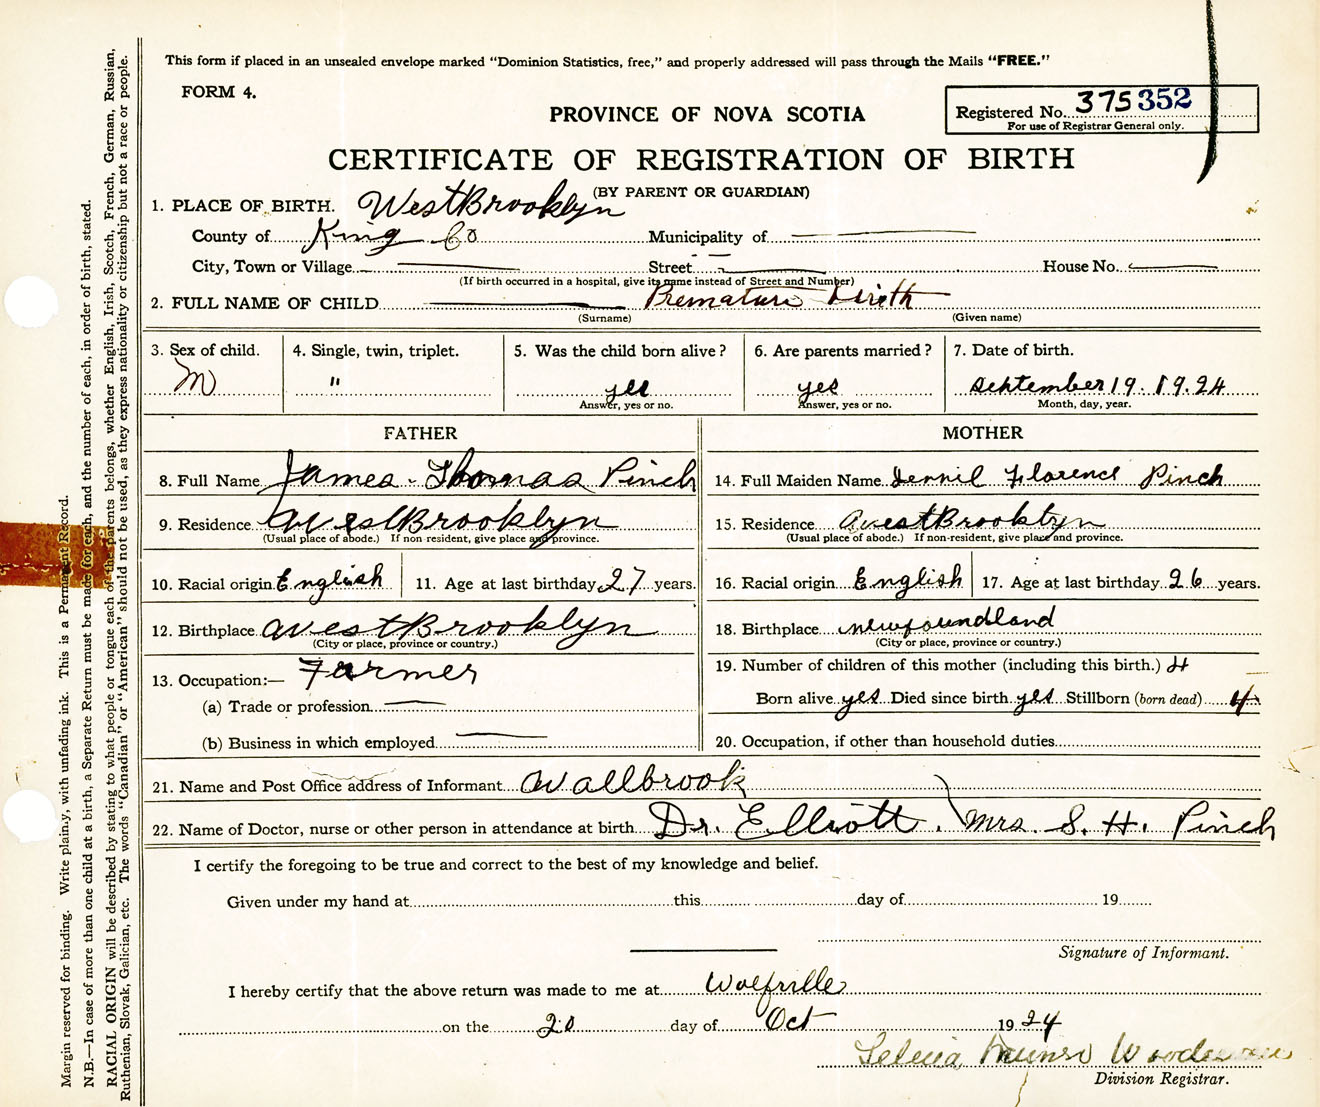 This form if placed in an unsealed envelope marked "Dominion Statistics, free," and properly addressed will pass through the Mails "FREE."
FORM 4.
PROVINCE OF NOVA SCOTIA
Registered No. 375352
For use of Registrar General only.
CERTIFICATE OF REGISTRATION OF BIRTH
(BY PARENT OR GUARDIAN)
1. PLACE OF BIRTH. West Brooklyn
County of King Co Municipality of
City, Town or Village Street House No.
(If birth occurred in a hospital, give its name instead of Street and Number)
2. FULL NAME OF CHILD Premature birth
(Surname) (Given name)
3. Sex of child. 4. Single, twin, triplet. 5. Was the child born alive? 6. Are parents married? 7. Date of birth.
M " yes yes September 19. 19.24
Answer, yes or no. Answer, yes or no. Month, day, year.
FATHER MOTHER
8. Full Name James. Thomas Pinch 14. Full Maiden Name Florence Pinch
9. Residence West Brooklyn 15. Residence West Brooklyn
(Usual place of abode.) If non-resident, give place and province. (Usual place of abode.) If non-resident, give place and province.
10. Racial origin English 11. Age at last birthday 27 years. 16. Racial origin English 17. Age at last birthday 26 years.
12. Birthplace West Brooklyn 18. Birthplace newfoundland
(City or place, province or country.) (City or place, province or country.)
13. Occupation:— Farmer 19. Number of children of this mother (including this birth.) 4
(a) Trade or profession Born alive yes Died since birth yes Stillborn (born dead) 4
(b) Business in which employed 20. Occupation, if other than household duties
21. Name and Post Office address of Informant Wallbrook
22. Name of Doctor, nurse or other person in attendance at birth Dr. Elliott. Mrs. S. H. Pinch
I certify the foregoing to be true and correct to the best of my knowledge and belief.
Given under my hand at this day of 19
Signature of Informant.
I hereby certify that the above return was made to me at Wolfville
on the 20 day of Oct 1924
Munro
Division Registrar.
Margin reserved for binding. Write plainly, with unfading ink. This is a Permanent Record.
N.B.—In case of more than one child at a birth, a Separate Return must be made for each, and the number of each, in order of birth, stated.
RACIAL ORIGIN will be described by stating to what people or tongue each of the parents belongs, whether English, Irish, Scotch, French, German, Russian,
Ruthenian, Slovak, Galician, etc. The words "Canadian" or "American" should not be used, as they express nationality or citizenship but not a race or people.